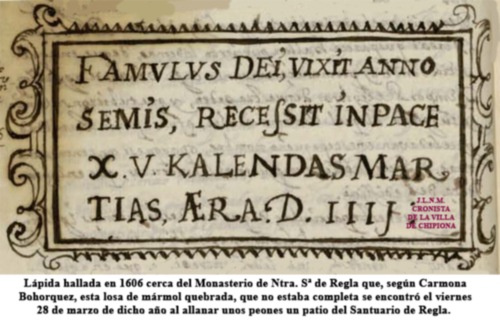 FAMVLVS DEI, VIXIT ANNO
SEMIS, RECEſSIT INPACE
X. V. KALENDAS MAR
TIAS, ÆRA. D. IIIJ.
J.L.N.M.
CRONISTA
DE LA VILLA
DE CHIPIONA
Lápida hallada en 1606 cerca del Monasterio de Ntra. Sª de Regla que, según Carmona
Bohorquez, esta losa de mármol quebrada, que no estaba completa se encontró el viernes
28 de marzo de dicho año al allanar unos peones un patio del Santuario de Regla.